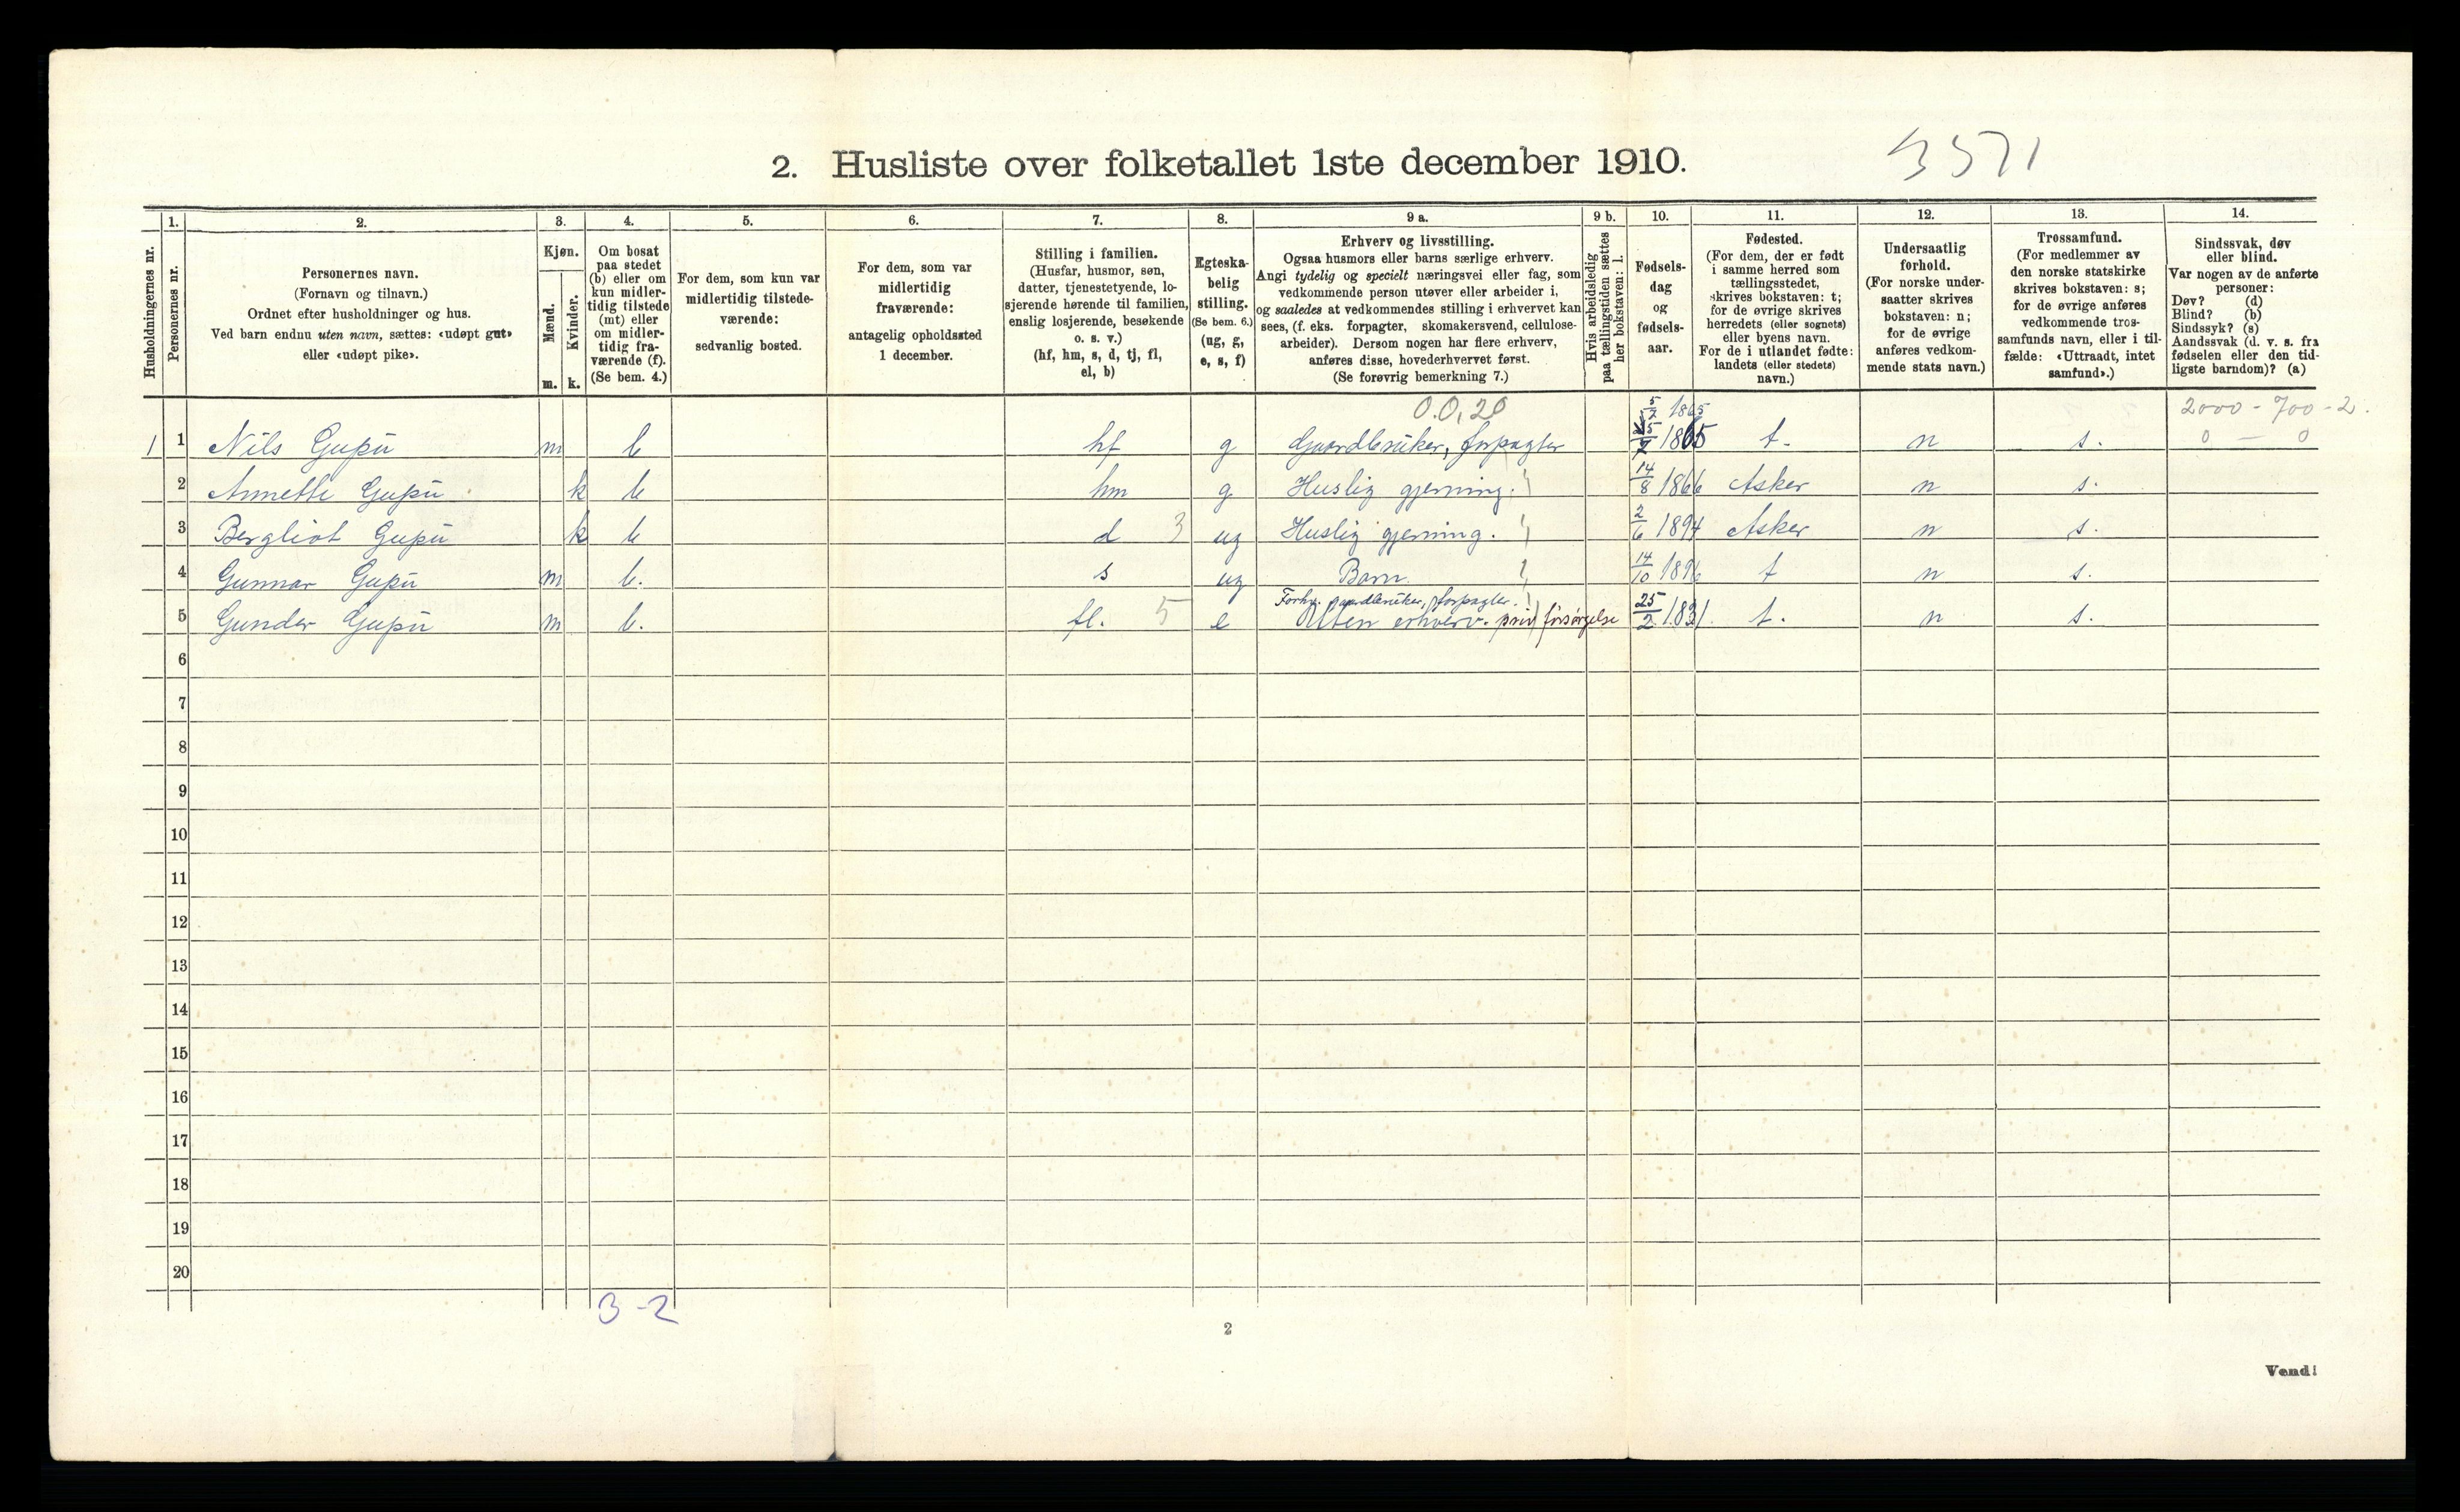 2. Husliste over folketallet 1ste december 1910.
3571
Husholdningernes nr.
1.
Personernes nr.
2.
Personernes navn.
(Fornavn og tilnavn.)
Ordnet efter husholdninger og hus.
Ved barn endnu uten navn, sættes: «udøpt gut»
eller «udøpt pike».
3.
Kjøn.
Mænd.
m.
Kvinder.
k.
4.
Om bosat
paa stedet
(b) eller om
kun midler-
tidig tilstede
(mt) eller
om midler-
tidig fra-
værende (f).
(Se bem. 4.)
5.
For dem, som kun var
midlertidig tilstede-
værende:
sedvanlig bosted.
6.
For dem, som var
midlertidig
fraværende:
antagelig opholdssted
1 december.
7.
Stilling i familien.
(Husfar, husmor, søn,
datter, tjenestetyende, lo-
sjerende hørende til familien,
enslig losjerende, besøkende
o. s. v.)
(hf, hm, s, d, tj, fl,
el, b)
8.
Egteska-
belig
stilling.
(Se bem. 6.)
(ug, g,
e, s, f)
9 a.
Erhverv og livsstilling.
Ogsaa husmors eller barns særlige erhverv.
Angi tydelig og specielt næringsvei eller fag, som
vedkommende person utøver eller arbeider i,
og saaledes at vedkommendes stilling i erhvervet kan
sees, (f. eks. forpagter, skomakersvend, cellulose-
arbeider). Dersom nogen har flere erhverv,
anføres disse, hovederhvervet først.
(Se forøvrig bemerkning 7.)
9 b.
Hvis arbeidsledig
paa tællingstiden sættes
her bokstaven: l.
10.
Fødsels-
dag
og
fødsels-
aar.
11.
Fødested.
(For dem, der er født
i samme herred som
tællingsstedet,
skrives bokstaven: t;
for de øvrige skrives
herredets (eller sognets)
eller byens navn.
For de i utlandet fødte:
landets (eller stedets)
navn.)
12.
Undersaatlig
forhold.
(For norske under-
saatter skrives
bokstaven: n;
for de øvrige
anføres vedkom-
mende stats navn.)
13.
Trossamfund.
(For medlemmer av
den norske statskirke
skrives bokstaven: s;
for de øvrige anføres
vedkommende tros-
samfunds navn, eller i til-
fælde: «Uttraadt, intet
samfund».)
14.
Sindssvak, døv
eller blind.
Var nogen av de anførte
personer:
Døv? (d)
Blind? (b)
Sindssyk? (s)
Aandssvak (d. v. s. fra
fødselen eller den tid-
ligste barndom)? (a)
0.0,20 5/7 1865 2000 - 700 - 2.
1 1 Nils Gupu m b hf g Gaardbruker, forpagter 5/7 1865 t. n s. 0 — 0
2 Annette Gupu k b hm g Huslig gjerning. 14/8 1866 Asker n s.
3 Bergliot Gupu k b d 3 ug Huslig gjerning. 2/6 1894 Asker n s.
4 Gunnar Gupu m b. s ug Barn 14/10 1896 t n s.
Forhv. gaardbruker, forpagter.
5 Gunder Gupu m b. fl. 5 e Uten erhverv. priv forsørgelse 25/2 1831. t. n s.
6
7
8
9
10
11
12
13
14
15
16
17
18
19
20
3 - 2
2
Vend!